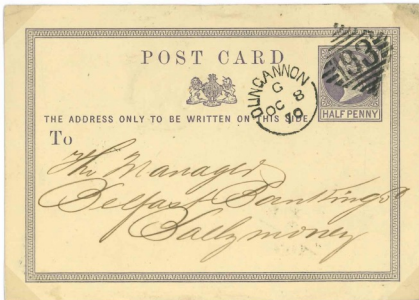 POST CARD
DUNGANNON
G
OC 8
70
193
HALF PENNY
THE ADDRESS ONLY TO BE WRITTEN ON THIS SIDE
To
The Manager
Belfast Banking Co
Ballymoney